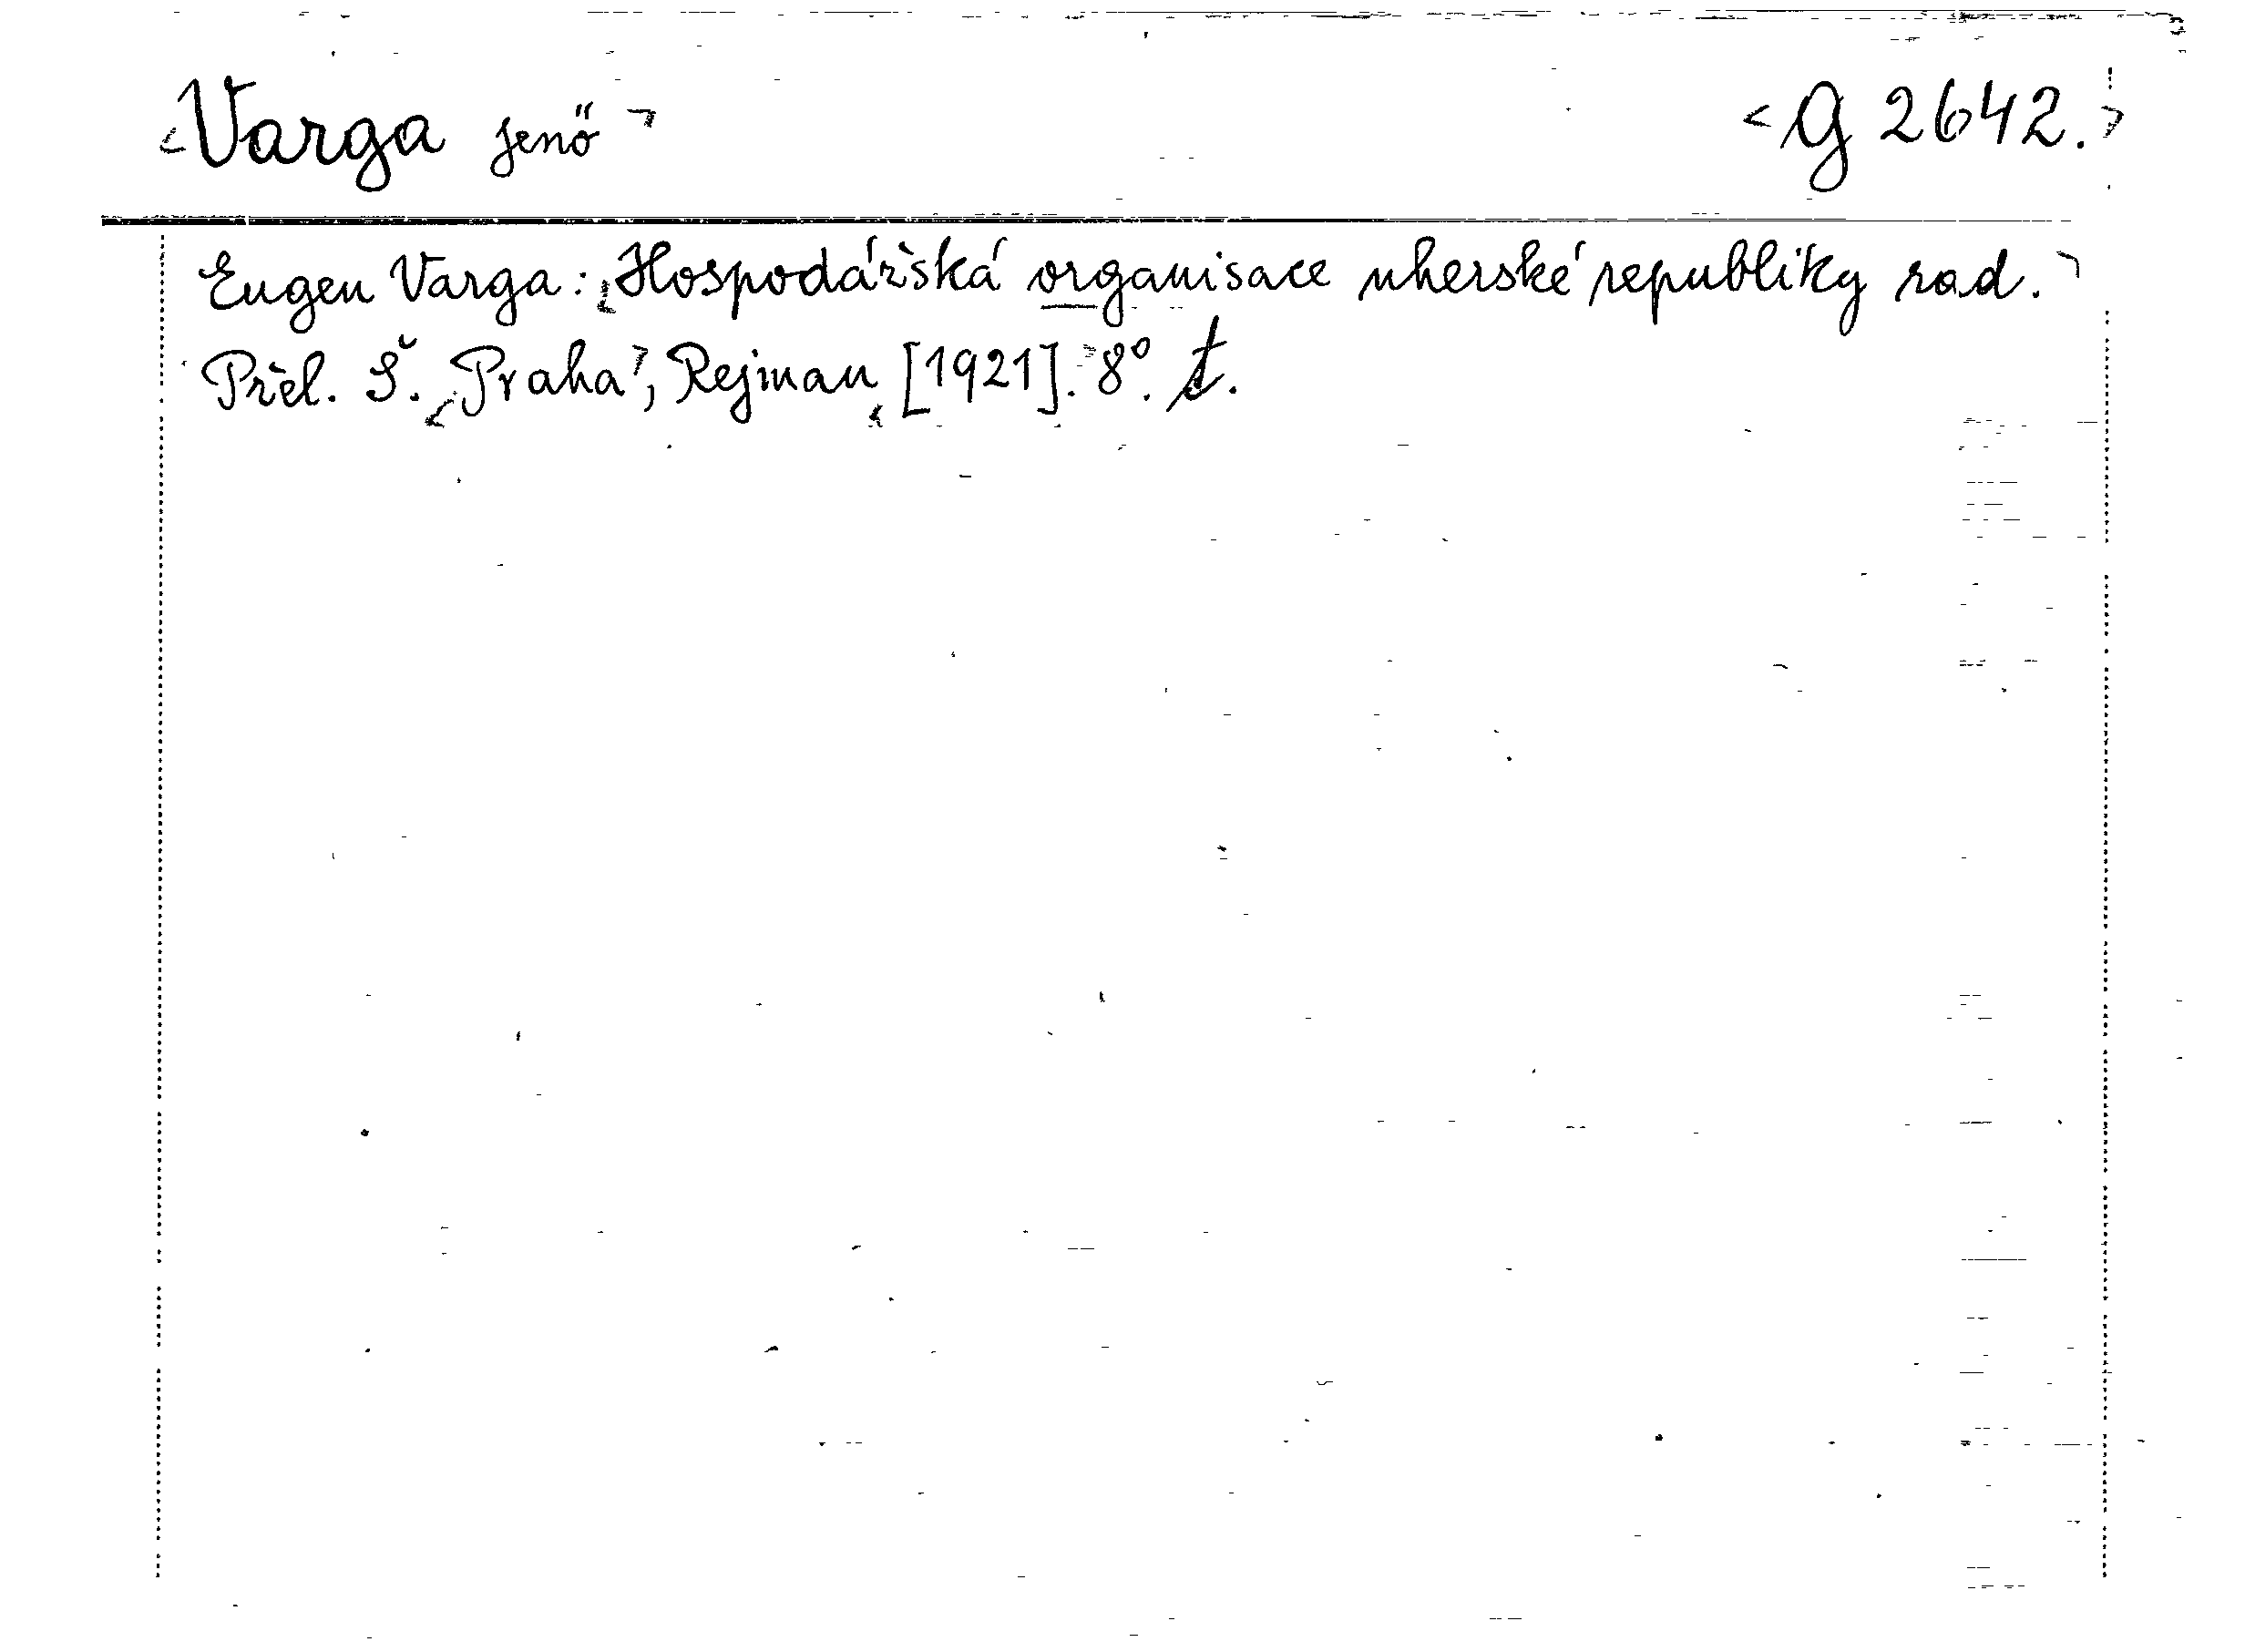 Varga Jenő G 2642.
Eugen Varga: Hospodářská organisace uherské republiky rad.
Přel. Š. Praha, Rejman [1921]. 8°. t.